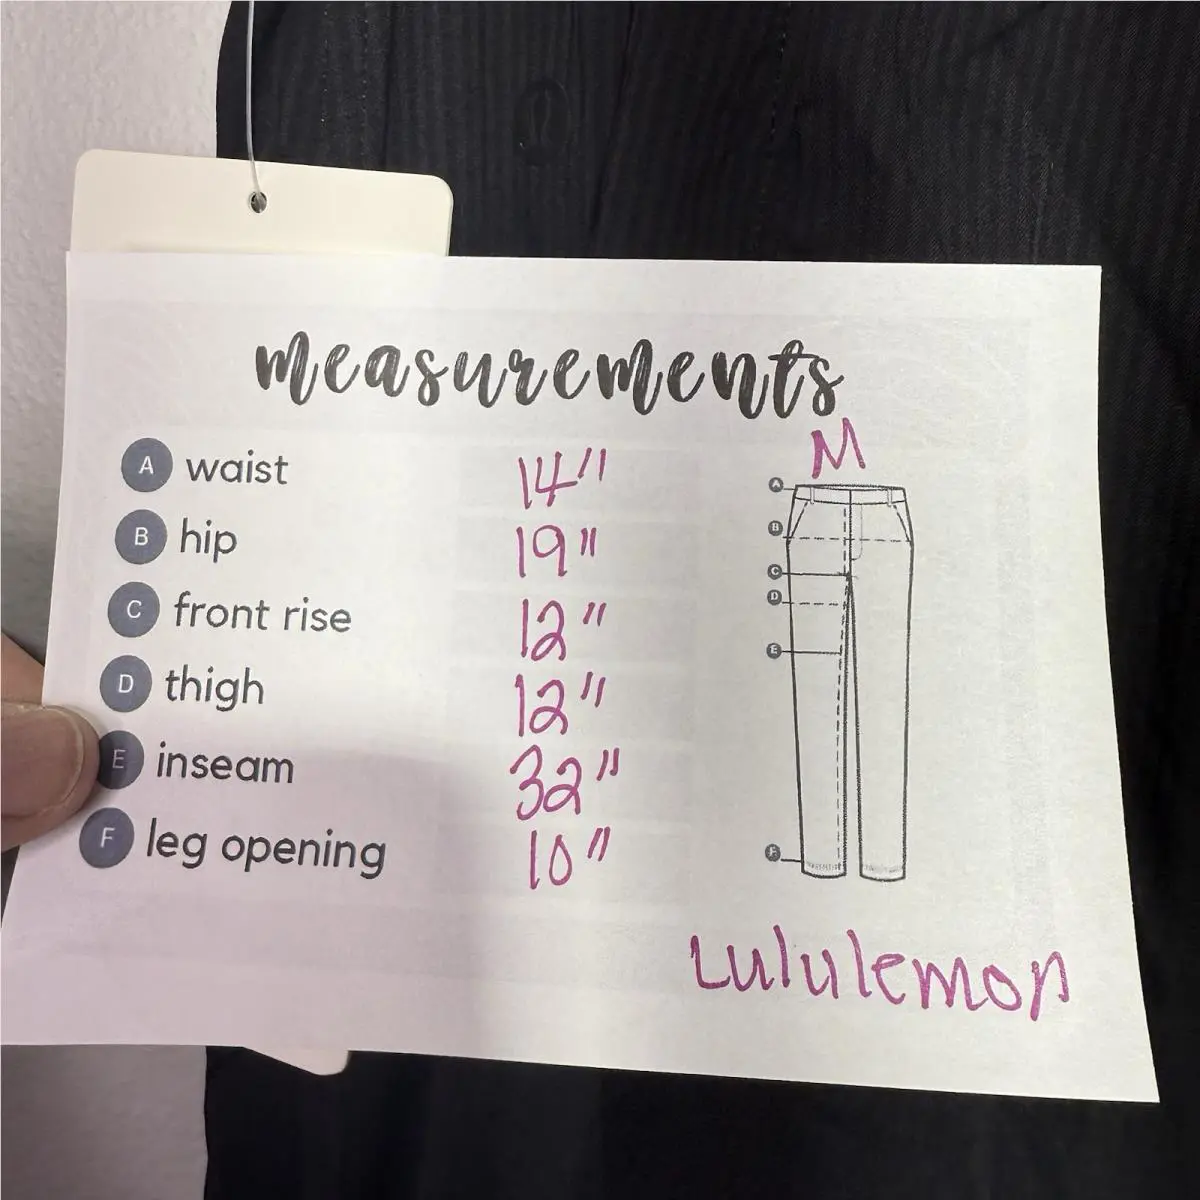 measurements
M
A waist 14"
B hip 19"
C front rise 12"
D thigh 12"
E inseam 32"
F leg opening 10"
A
B
C
D
E
F
Lululemon